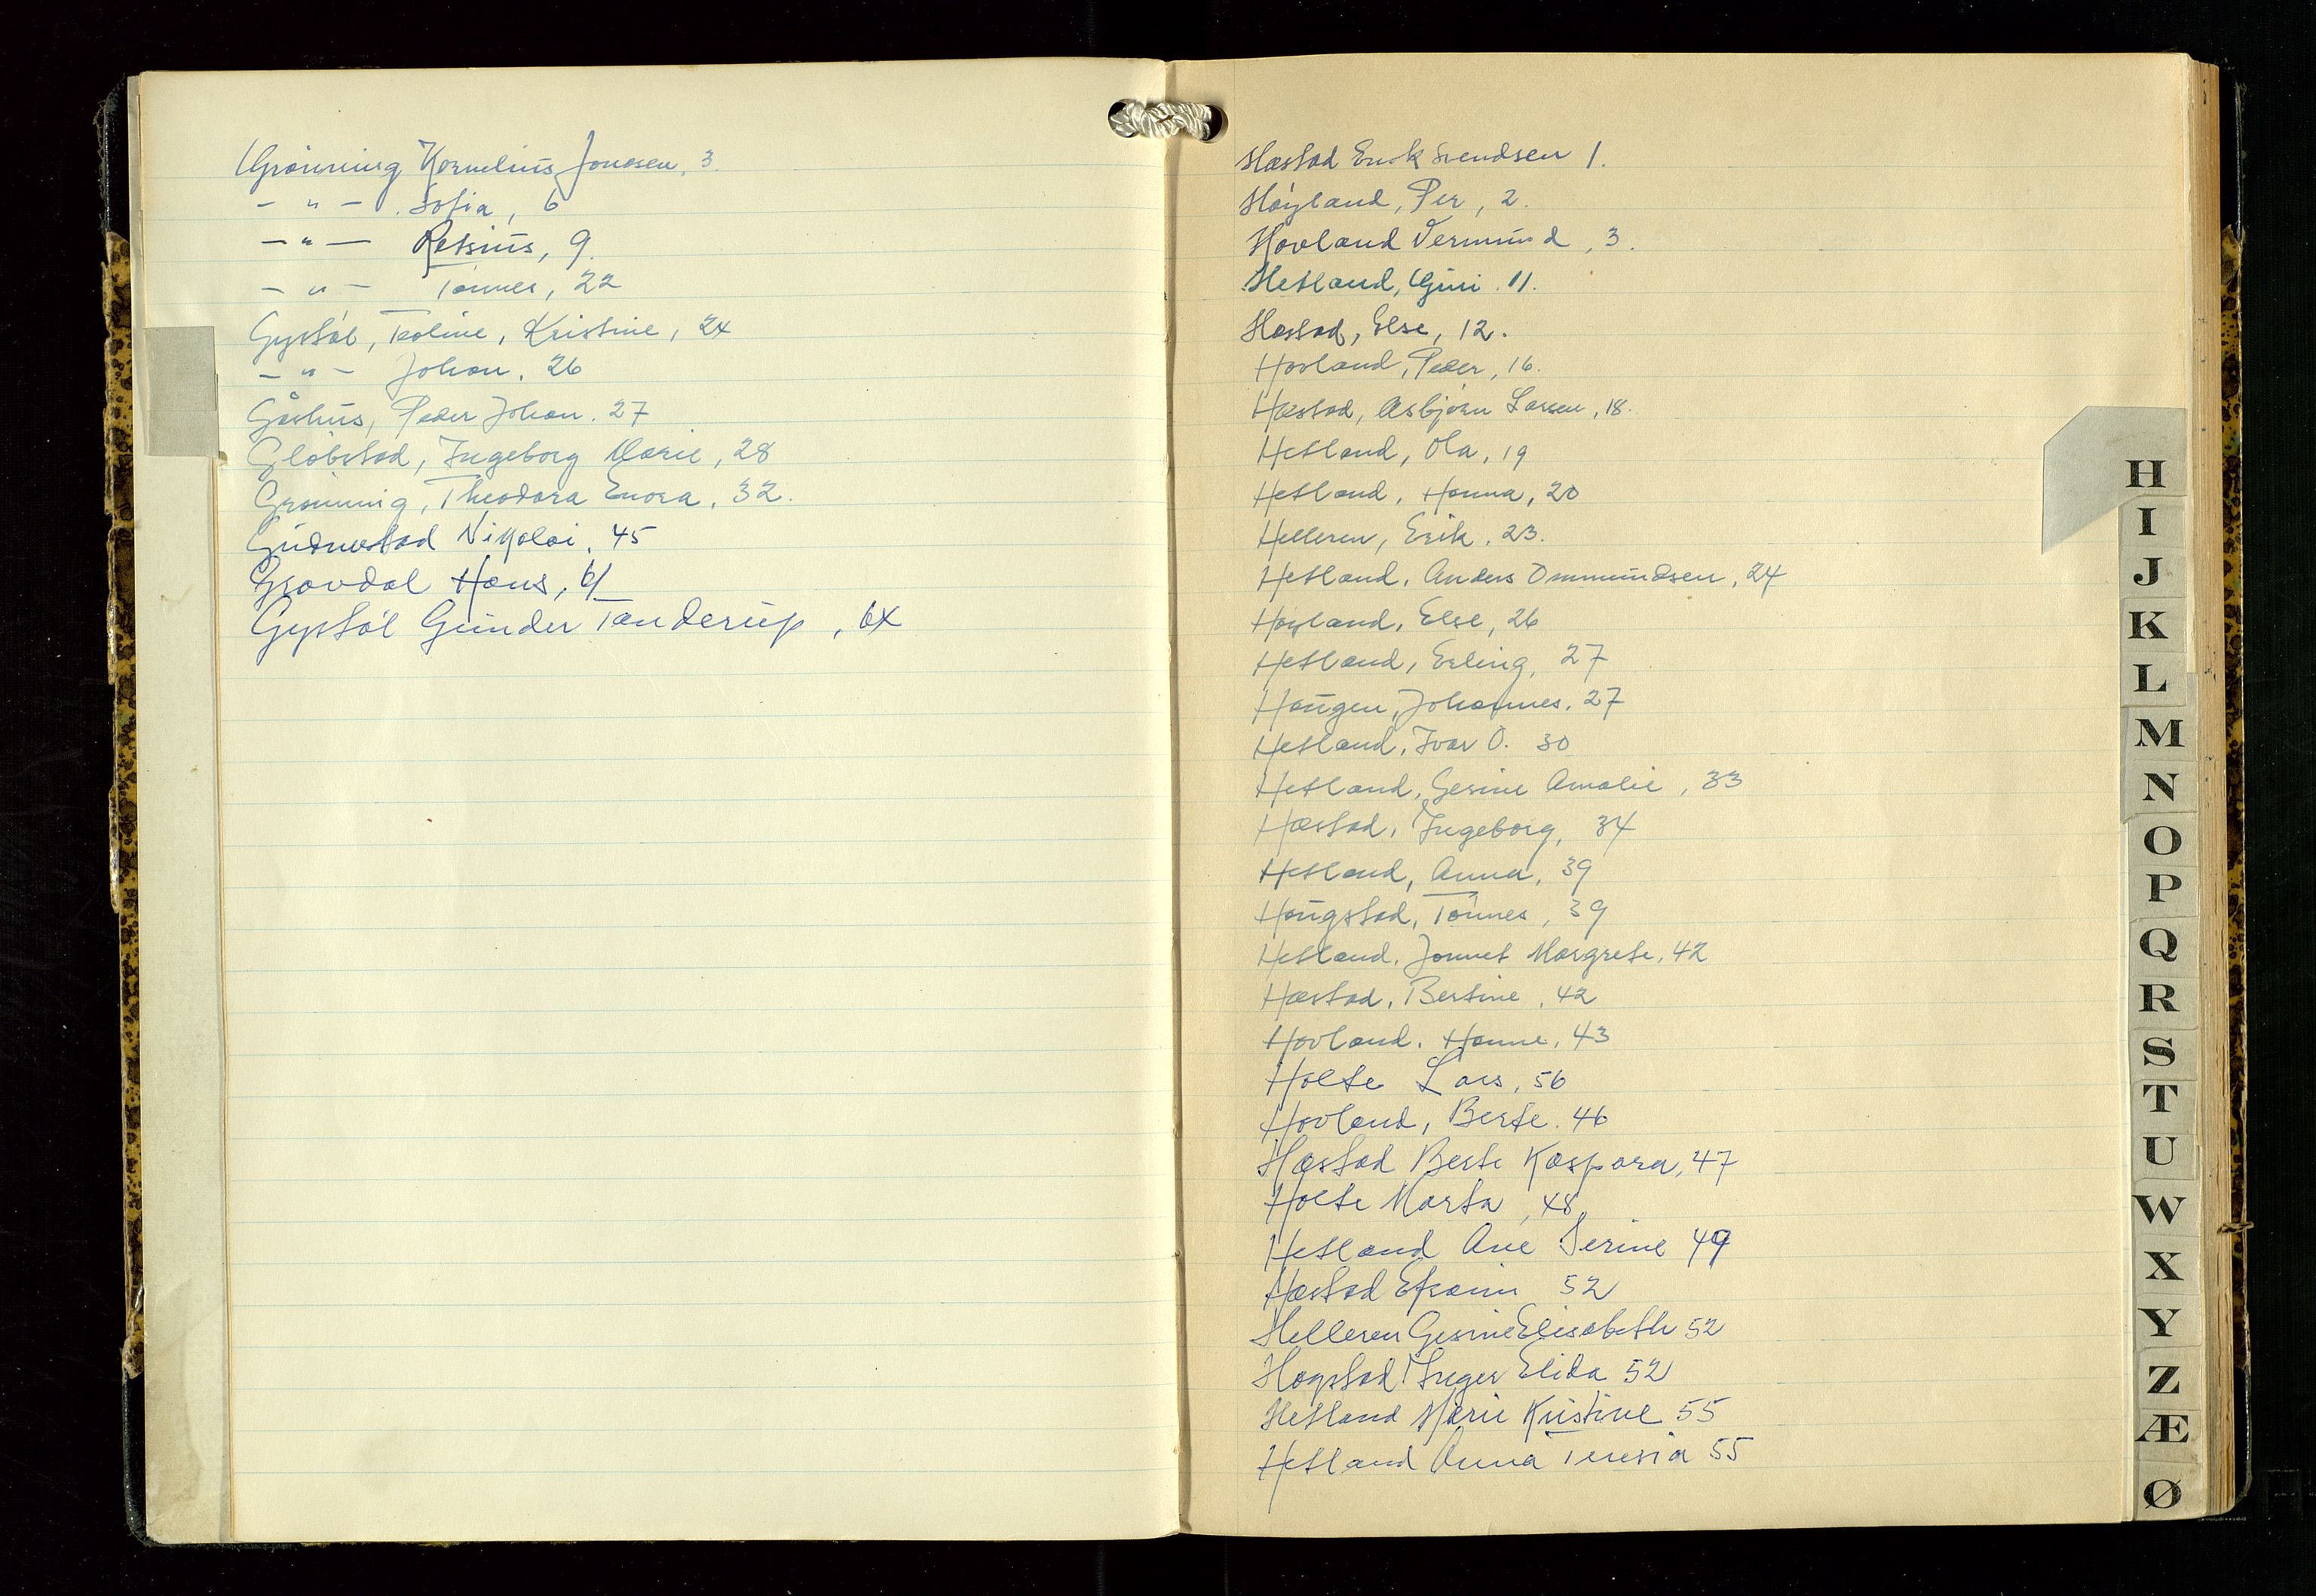 Grönning Kornelius Jonasen, 3.
- " - Sofia, 6
- " - Retsius, 9.
- " - Tönnes, 22
Gystöl, Troline, Kristine, 24
- " - Johan, 26
Gåshus, Peder Johan. 27
Gløbstad, Ingeborg Marie, 28
Grønning, Theodora Enora, 32.
Gudmestad Nikolai, 45
Grovdal Hans, 61
Gystöl Gunder Tanderup, 64
Hæstad Enok Svendsen 1.
Höyland, Per, 2.
Hovland Vermund, 3.
Hetland, Guri. 11.
Hæstad, Else, 12.
Hovland, Peder, 16.
Hæstad, Asbjørn Larsen, 18.
Hetland, Ola, 19
Hetland, Hanna, 20
Helleren, Erik, 23.
Hetland, Anders Ommundsen, 24
Høyland, Else, 26
Hetland, Erling, 27
Haugen, Johannes, 27
Hetland, Ivar O. 30
Hetland, Gesine Amalie, 33
Hæstad, Ingeborg, 34
Hetland, Anna, 39
Haugstad, Tönnes, 39
Hetland, Jonnet Margrete, 42
Hæstad, Bertine, 42
Hovland, Hanne, 43
Holte Lars, 56
Hovland, Berte. 46
Hæstad Berte Kaspara, 47
Holte Marta, 48
Hetland Ane Serine 49
Hæstad Efraim 52
Helleren Gesine Elisabeth 52
Hogstad Inger Elida 52
Hetland Marie Kristine 55
Hetland Anna Teresia 55
H
I
J
K
L
M
N
O
P
Q
R
S
T
U
W
X
Y
Z
Æ
Ø